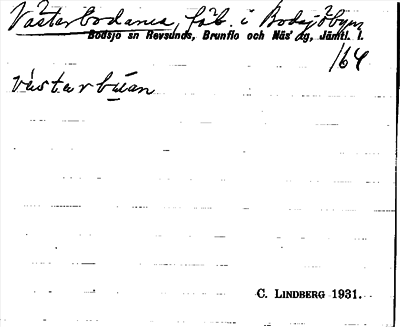 Västerbodarna, fäb. i Bodsjöbyn
Bodsjö sn Revsunds, Brunflo och Näs' tg, Jämtl. l.
164
västarbúan
C. LINDBERG 1931.